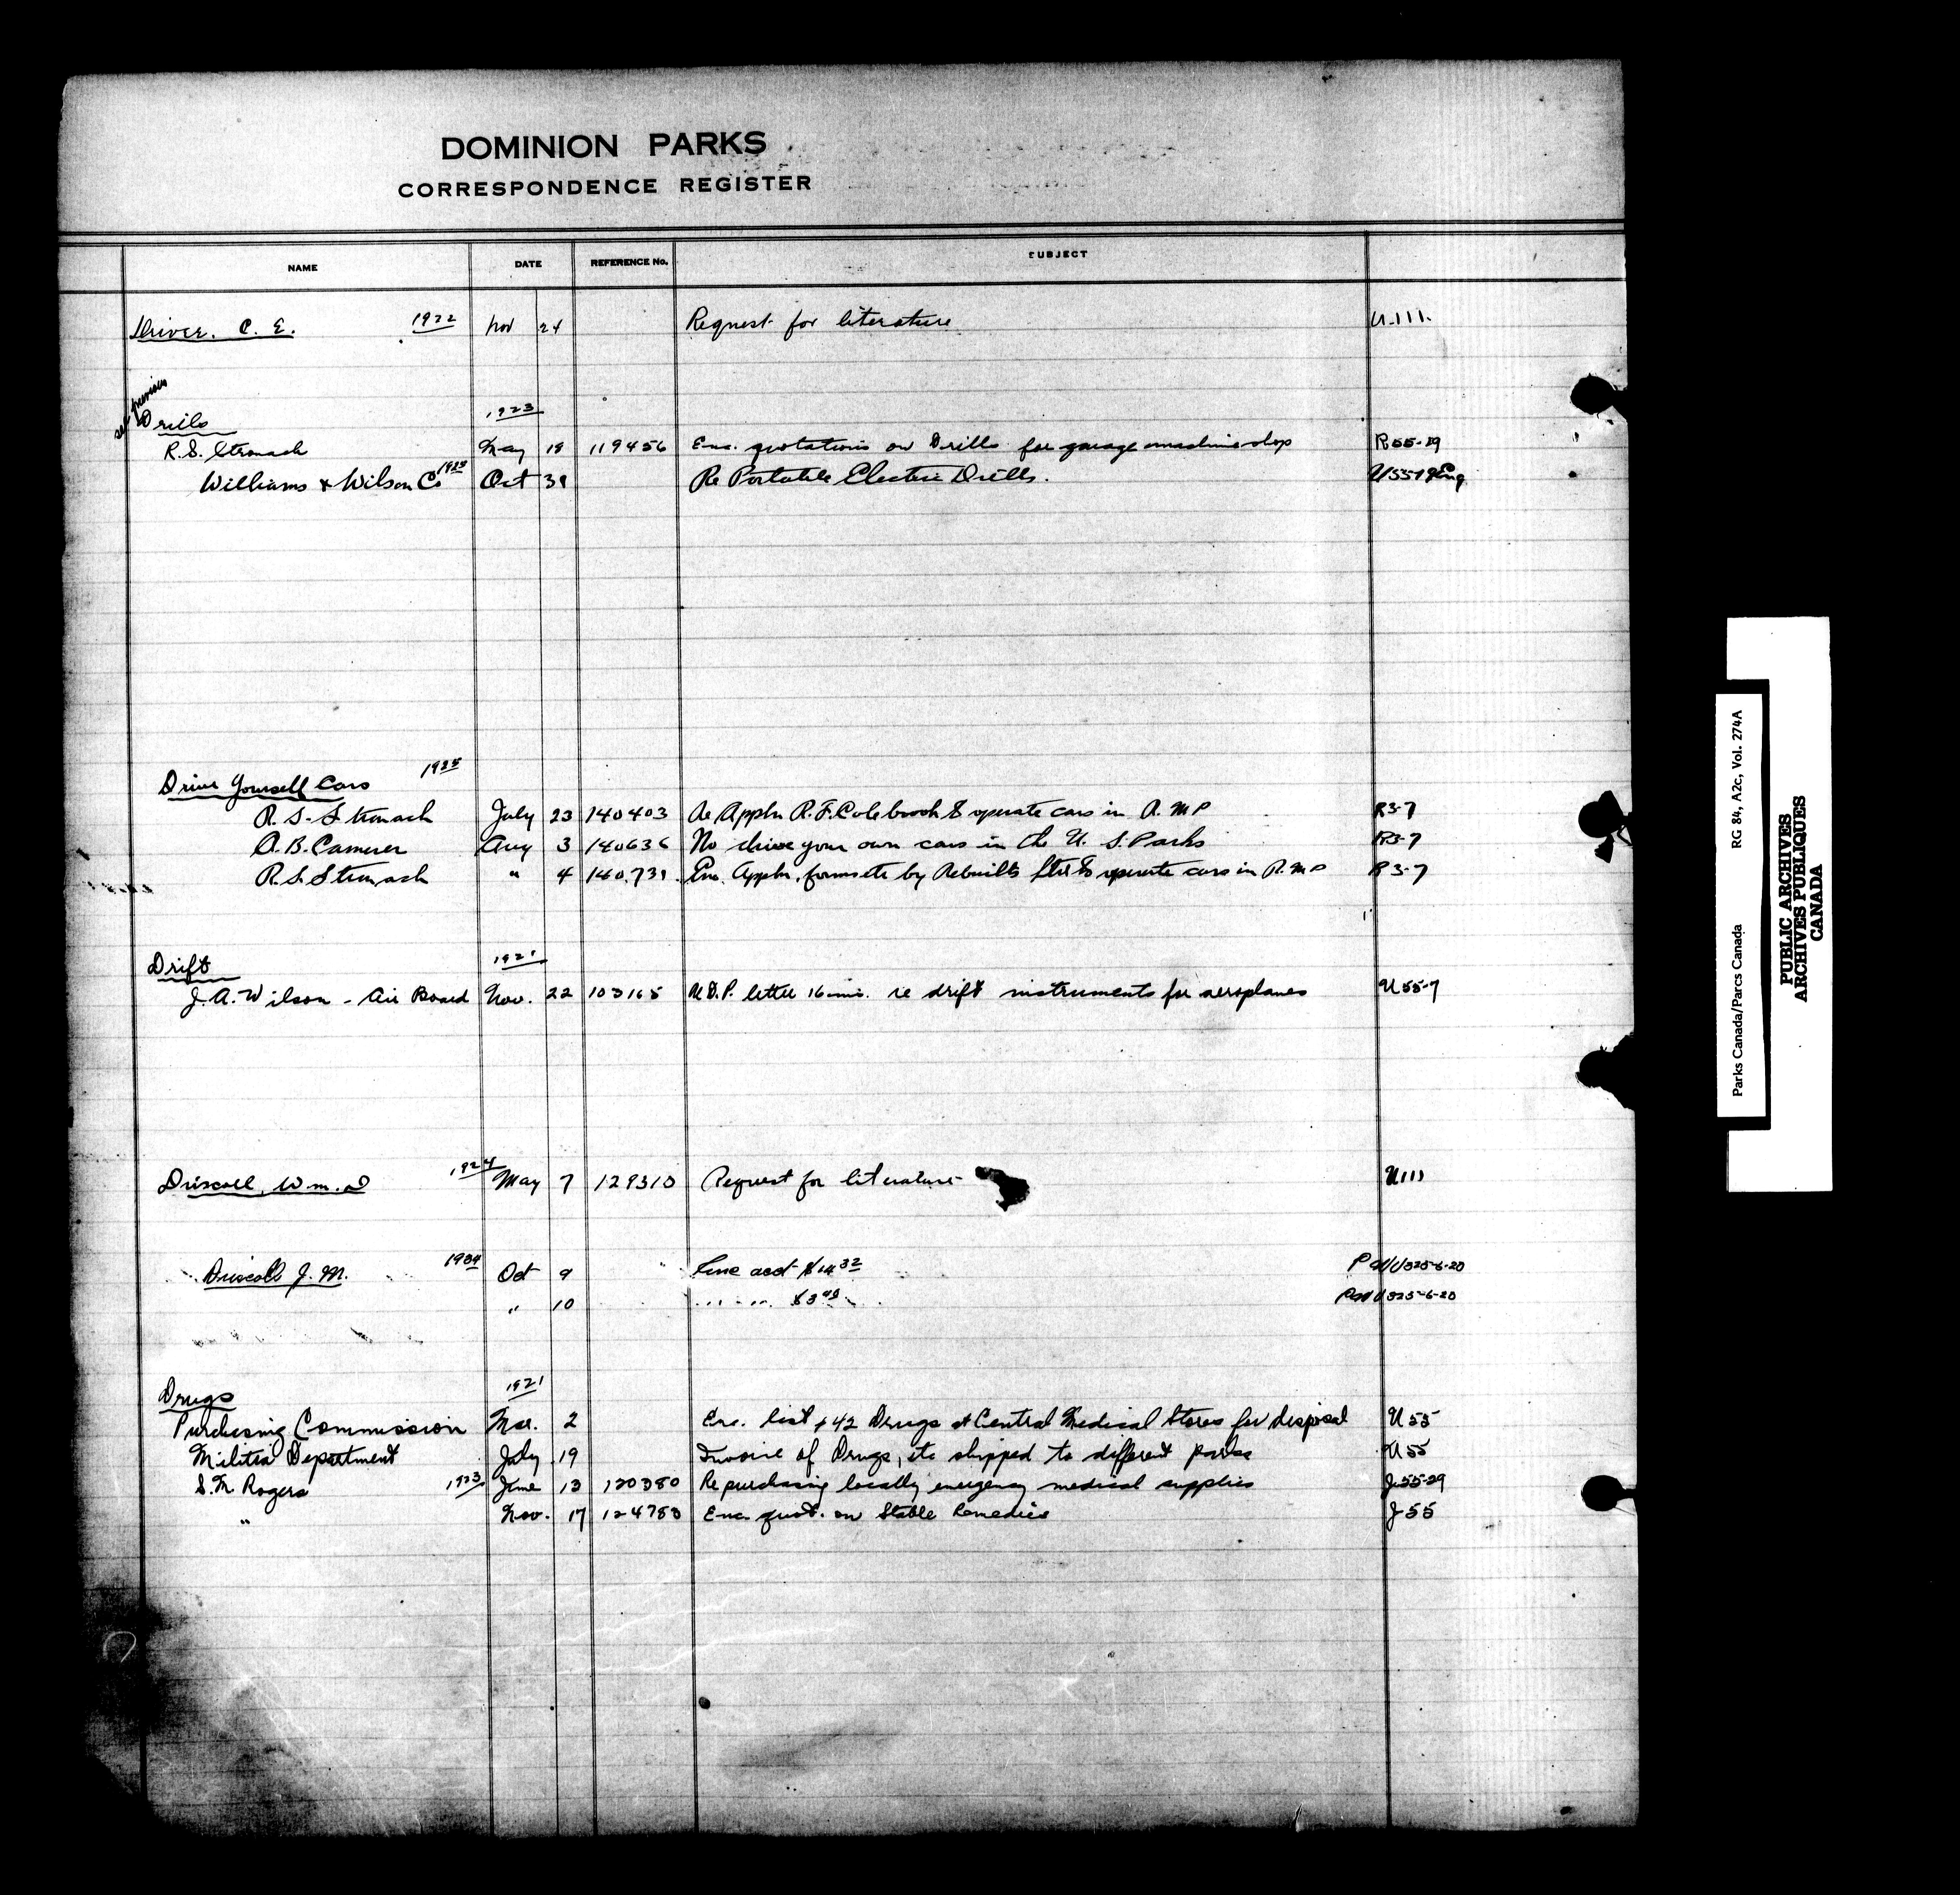 DOMINION PARKS
CORRESPONDENCE REGISTER
NAME DATE REFERENCE No. SUBJECT
Driver. C. E. 1922 Nov 24 Request for literature U.111.
see previous
Drills 1923
R. S. Stronach May 19 119456 Enc. quotations on Drills for garage machine shop R55-19
Williams & Wilson Co Oct 31 Re Portable Electric Drills.
Drive Yourself Cars
R. S. Stronach July 23 140403 Re Appln R. F. Colebrook to operate cars in R. M P R3-7
A. B. Camerer Aug 3 140636 No drive your own cars in the U. S. Parks R3-7
R. S. Stronach " 4 140731. Enc. Appln. forms etc by to operate cars in R. M P R3-7
Drift 1921
J. A. Wilson - Air Board Nov. 22 103165 letter 16 re drift instruments for aeroplanes U 55-7
Driscoll, Wm. 1924 May 7 129310 Request for literature U111
Driscoll J. M. 1934 Oct 9 acct $14 32 U325-6-20
" 10 U325-6-20
Drugs 1921
Purchasing Commission Mar. 2 Enc. list Drugs at Central Medical Stores for disposal U 55
Militia Department July 19 Invoice of Drugs, etc shipped to different parks U 55
S. M. Rogers 1923 June 13 120380 Re purchasing locally emergency medical supplies J-55-29
" Nov. 17 124783 Enc. quot. on Stable Remedies J-55
Parks Canada/Parcs Canada RG 84, A2c, Vol. 274A
PUBLIC ARCHIVES
ARCHIVES PUBLIQUES
CANADA